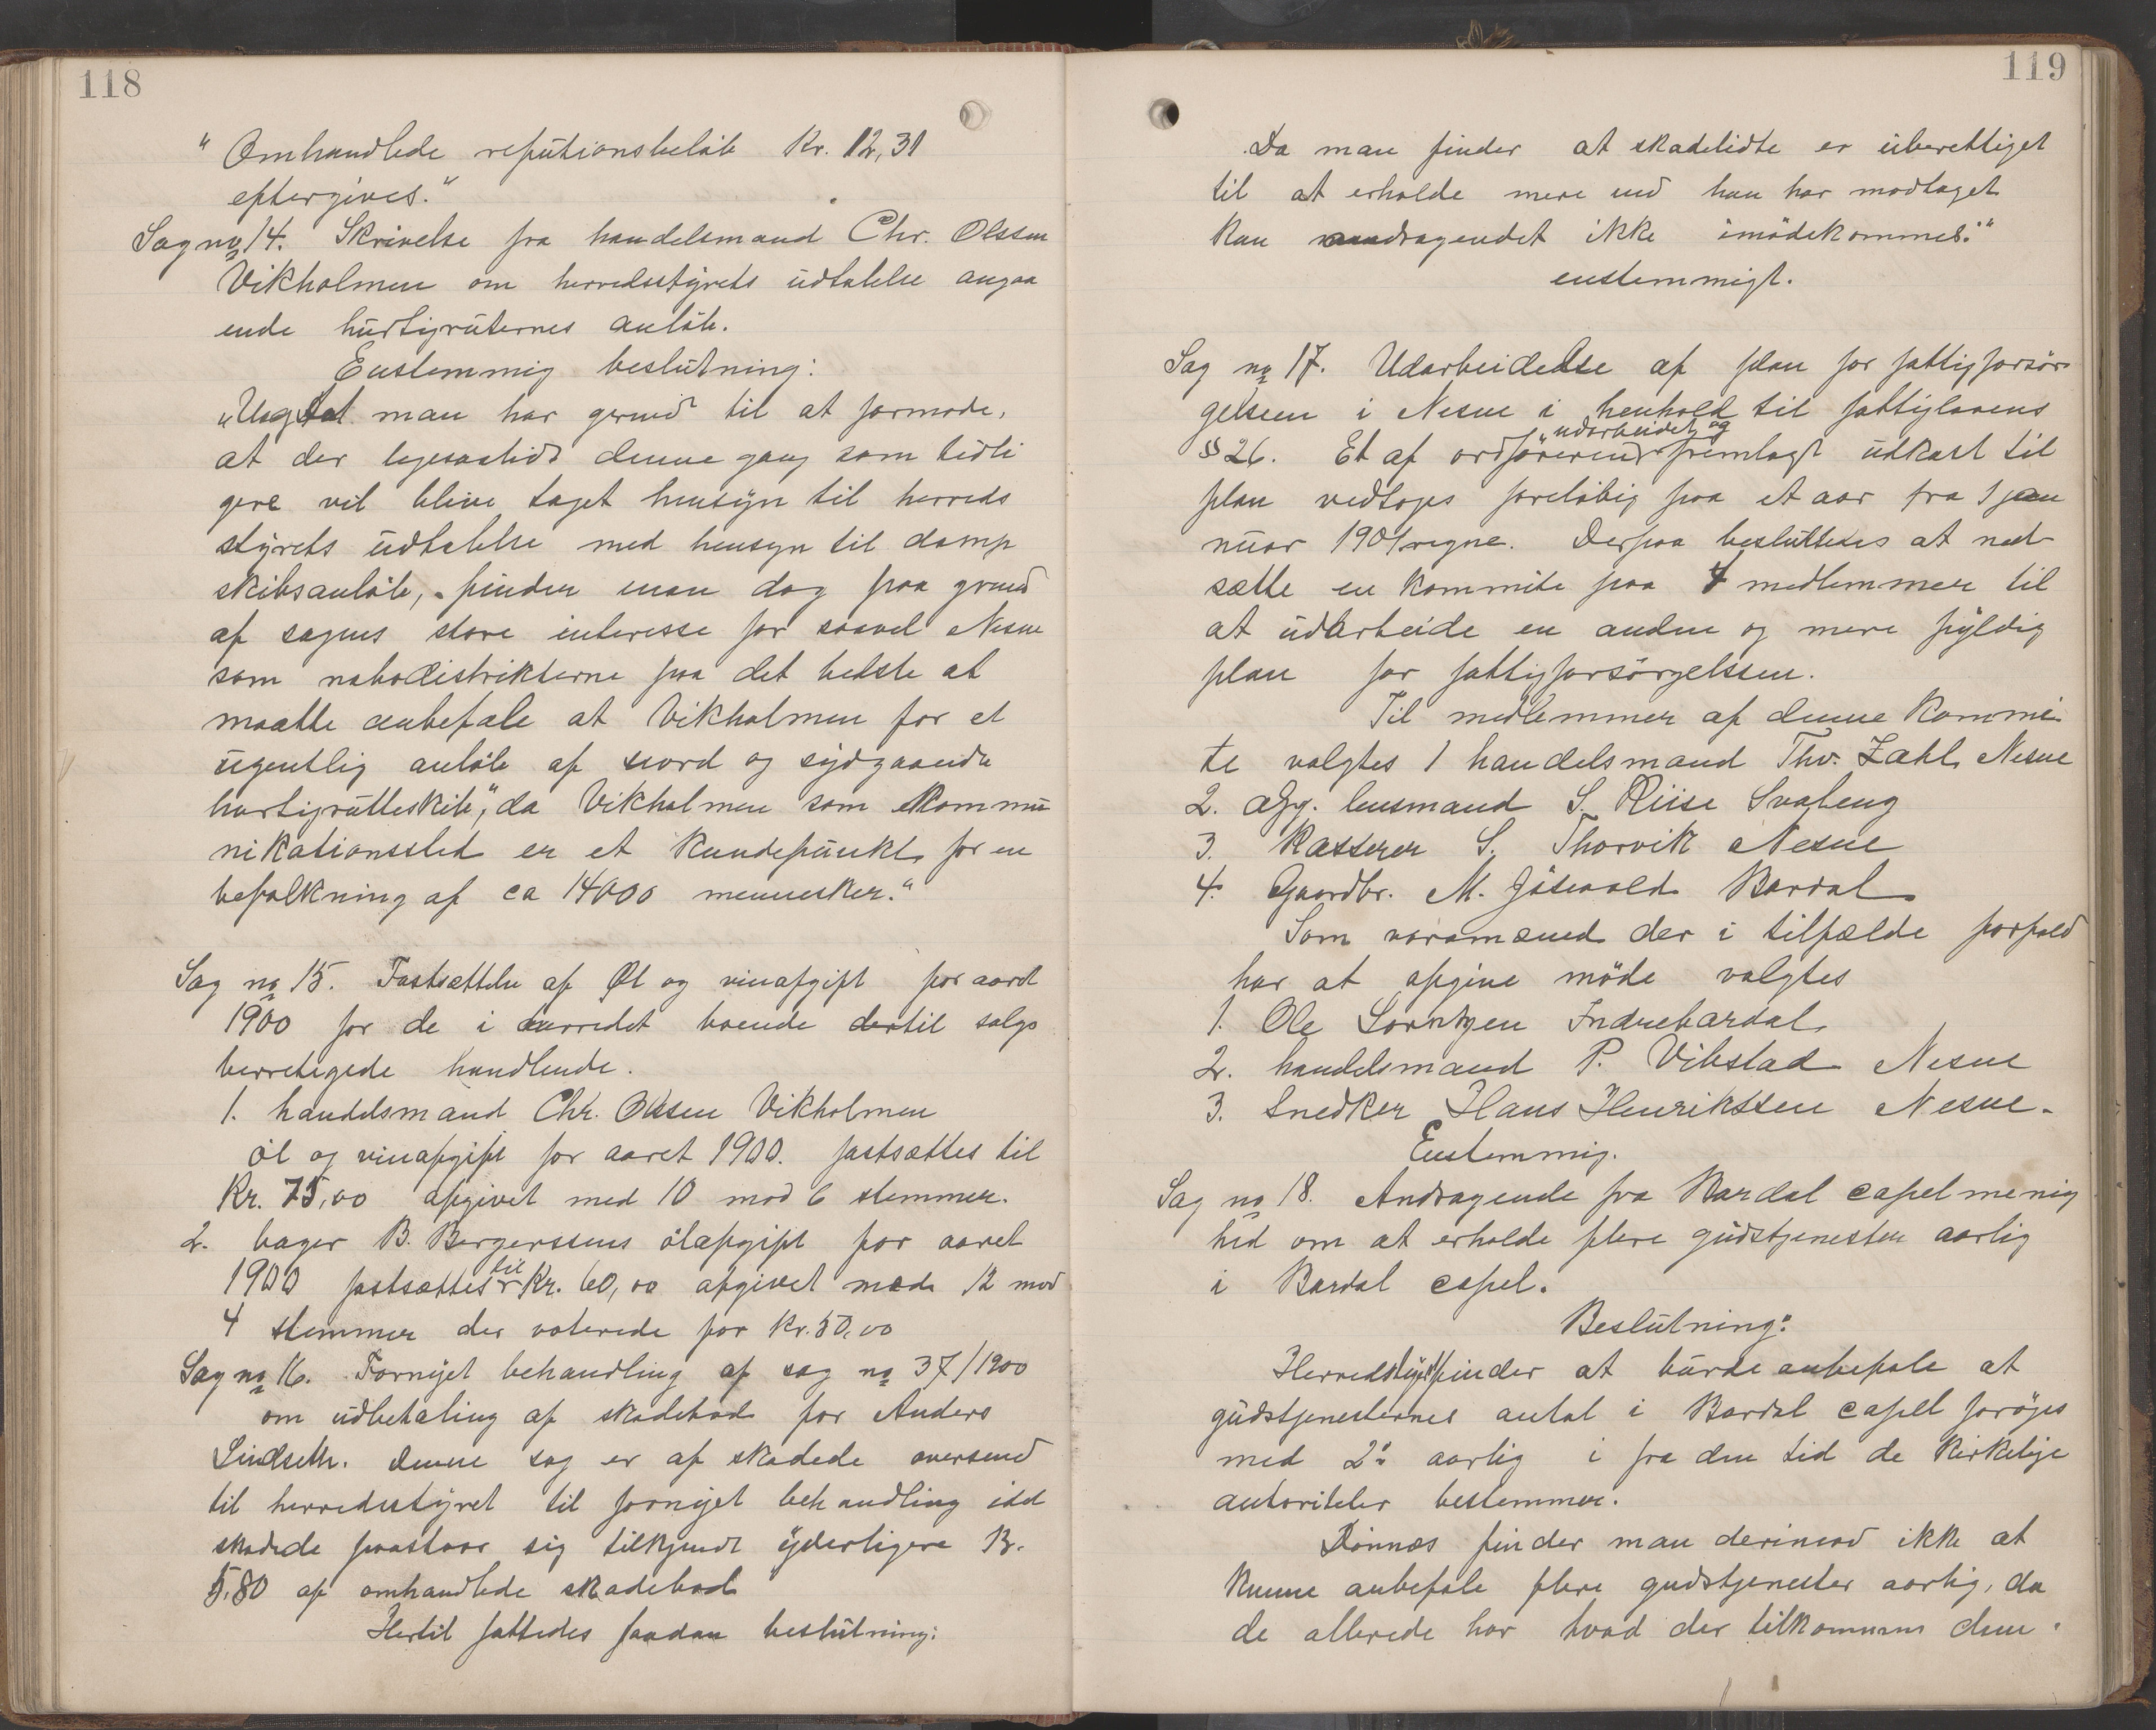 118
„Omhandlede refutionsbeløb Kr. 12,31
eftergives."
Sag no 14. Skrivelse fra handelsmand Chr. Olssen
Vikholmen om herredsstyrets udtalelse angaa
ende hurtigruternes anløb.
Enstemmig beslutning:
„Uagtet man har grund til at formode,
at der ligesaalidt denne gang som tidli
gere vil blive taget hensyn til herreds
styrets udtalelse med hensyn til damp
skibsanløb, finder man dog paa grund
af sagens store interesse for saavel Nesne
som nabodistrikterne paa det bedste at
maatte anbefale at Vikholmen faar et
ugentlig anløb af nord og sydgaaende
hurtigrutteskib", da Vikholmen som kommu
nikationssted er et knudepunkt for en
befolkning af ca 14000 mennesker."
Sag no 15. Fastsættelse af Øl og vinafgift for aaret
1900 for de i herredet boende dertil salgs
berretigede handlende.
1. handelsmand Chr. Olssen Vikholmen
øl og vinafgift for aaret 1900. fastsættes til
Kr. 75,00 afgivet med 10 mod 6 stemmer.
2. bager B. Bergerssens ølafgift for aaret
1900 fastsættes til Kr. 60,00 afgivet med 12 mod
4 stemmer der voterede for Kr. 50,00
Sag no 16. Fornyet behandling af sag no 37/1900
om udbetaling af skadebod for Anders
Lindseth. denne sag er af skadede oversend
til herredsstyret til fornyet behandling idet
skadede paastaar sig tilkjendt yderligere Kr.
5,80 af omhandlede skadebod
Hertil fattedes saadan beslutning:
119
Da man finder at skadelidte er uberettiget
til at erholde mere end han har modtaget
kan andragendet ikke imødekommes."
enstemmigt.
Sag no 17. Udarbeidelse af plan for fattigforsør
gelsen i Nesne i henhold til fattiglovens
§ 26. Et af ordføreren udarbeidet og fremlagt udkast til
plan vedtoges foreløbig paa et aar fra 1 jan
nuar 1901 regne. Derpaa besluttedes at ned
sætte en kommite paa 4 medlemmer til
at udarbeide en anden og mere fyldig
plan for fattigforsørgelssen.
Til medlemmer af denne kommi
te valgtes 1 handelsmand Thv. Zahl, Nesne
2. lensmand S. Riise Svabeng
3. Kasserer S. Thorvik Nesne
4. Gaardbr. M. Bardal
Som varamænd der i tilfælde forfald
har at afgive møde valgtes
1. Ole Lorntzen Indrebardal
2. handelsmand P. Vibstad Nesne
3. Snedker Hans Henrikssen Nesne.
Enstemmig.
Sag no 18. Andragende fra Bardal capelmenig
hed om at erholde flere gudstjenester aarlig
i Bardal capel.
Beslutning:
Herredsstyret finder at burde anbefale at
gudstjenesternes antal i Bardal capel forøges
med 2: aarlig i fra den tid de kirkelige
autoriteter bestemmer.
Dønnæs finder man derimod ikke at
kunne anbefale flere gudstjenester aarlig, da
de allerede har hvad der tilkommer dem.